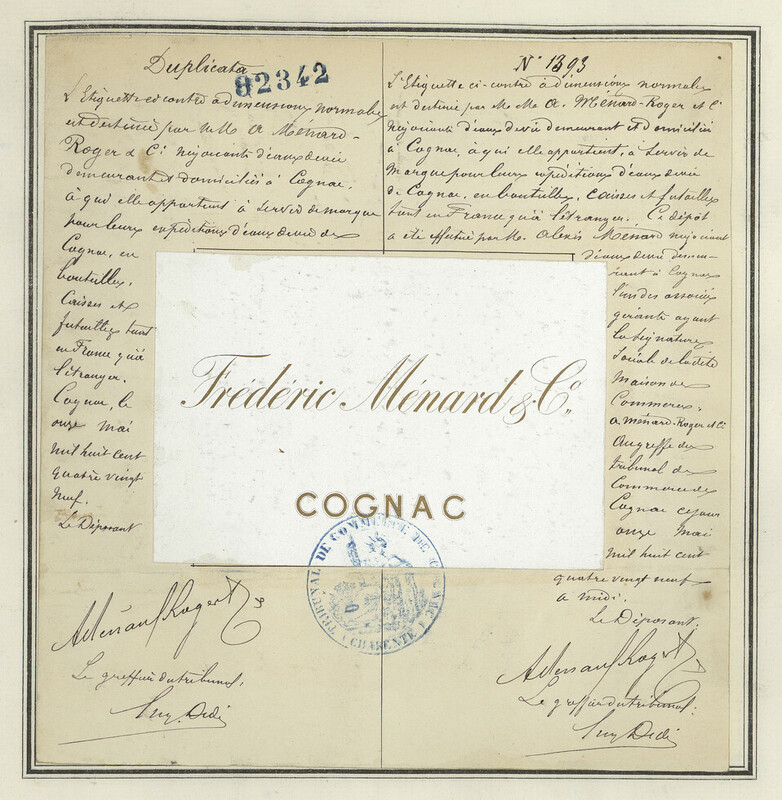 Duplicata
02342
L'Etiquette ci contre à dimensions normales
est destinée par MM A Ménard-
Roger & Cie négociants d'eaux de vie
demeurant et domiciliés à Cognac,
à qui elle appartient à servir de marque
pour leurs expéditions d'eaux de vie de
Cognac, en
bouteilles,
Caisses et
futailles tant
en France qu'à
l'étranger.
Cognac, le
onze Mai
mil huit cent
quatre vingt
neuf.
Le Déposant
AMénardRoger & Cie
Le greffier du tribunal:
N° 1393
L'Etiquette ci-contre à dimensions normales
est destinée par MM. A. Ménard-Roger et Cie
négociants d'eaux de vie demeurant et domiciliés
à Cognac, à qui elle appartient, à servir de
Marque pour leurs expéditions d'eaux de vie
de Cognac, en bouteilles, caisses et futailles
tant en France qu'à l'étranger. Ce dépôt
a été effectué par M. Alexis Ménard négociant
d'eaux de vie demeu-
rant à Cognac
l'un des associés
gérants ayant
la signature
Sociale de la dite
Maison de
Commerce,
A Ménard-Roger et Cie
Au greffe du
tribunal de
Commerce de
Cognac ce jour
onze Mai
mil huit cent
quatre vingt neuf
a midi.
Le Déposant:
AMénardRoger & Cie
Le greffier du tribunal:
Frédéric Ménard & Co.
COGNAC
TRIBUNAL DE COMMERCE DE COGNAC
(CHARENTE)